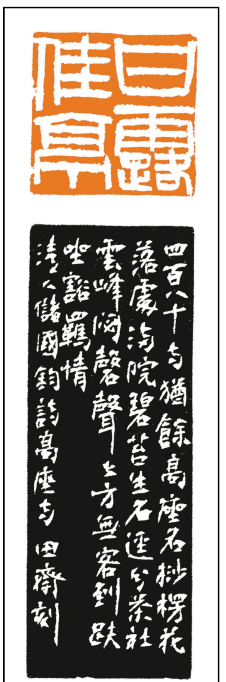 甘露佳亭
四百八十寺猶餘高座名桫楞花
落處滿院碧苔生石逕分茶社
雲峰悶磬聲上方無客到趺
坐豁羈情
清人儲國鈞詩高座寺 田齋刻